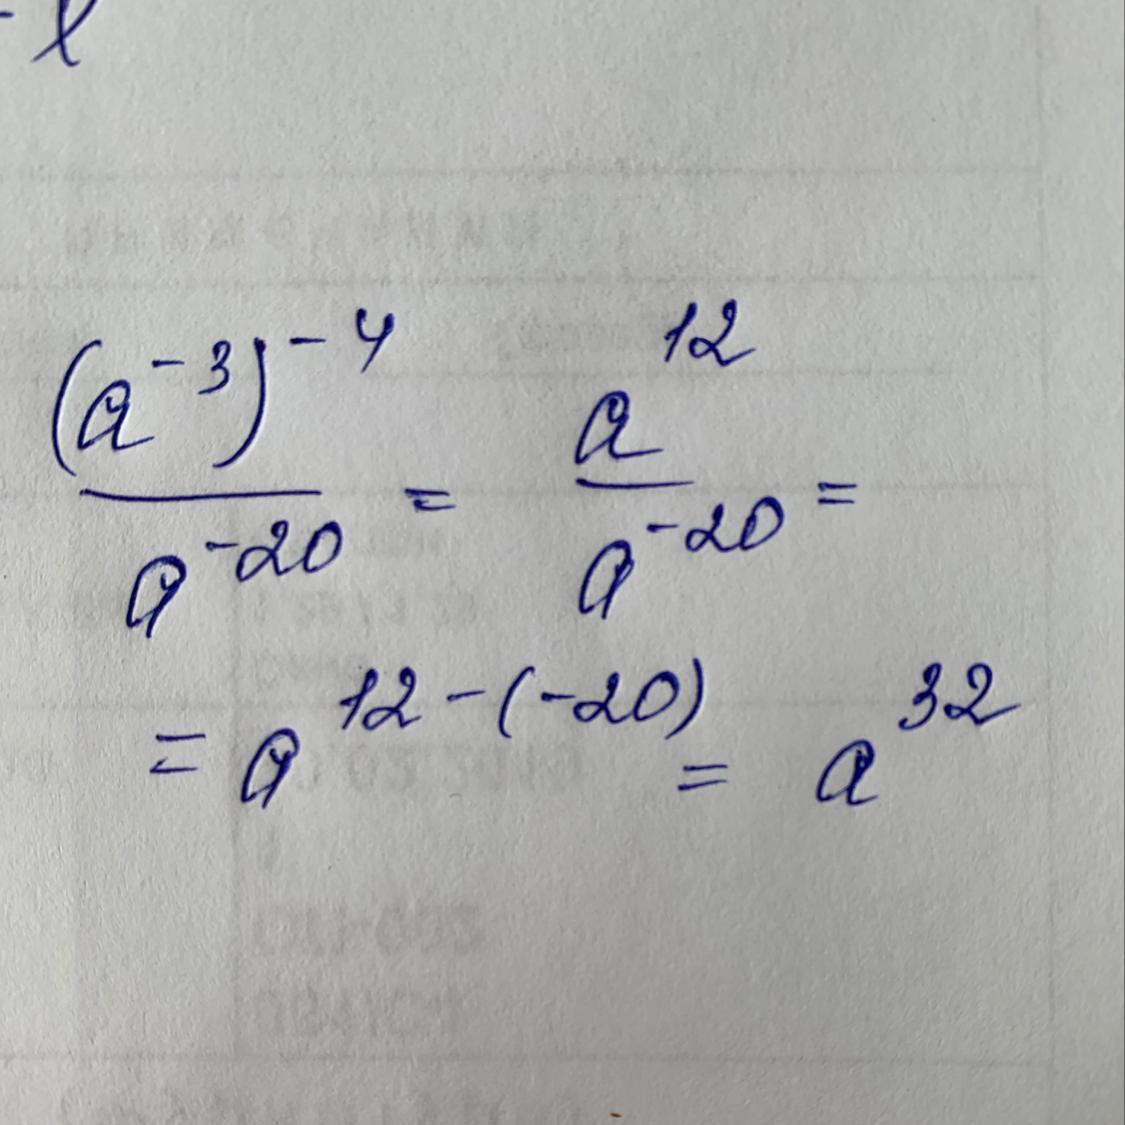 - l
(a⁻³)⁻⁴ / a⁻²⁰ = a¹² / a⁻²⁰ =
= a¹²⁻⁽⁻²⁰⁾ = a³²